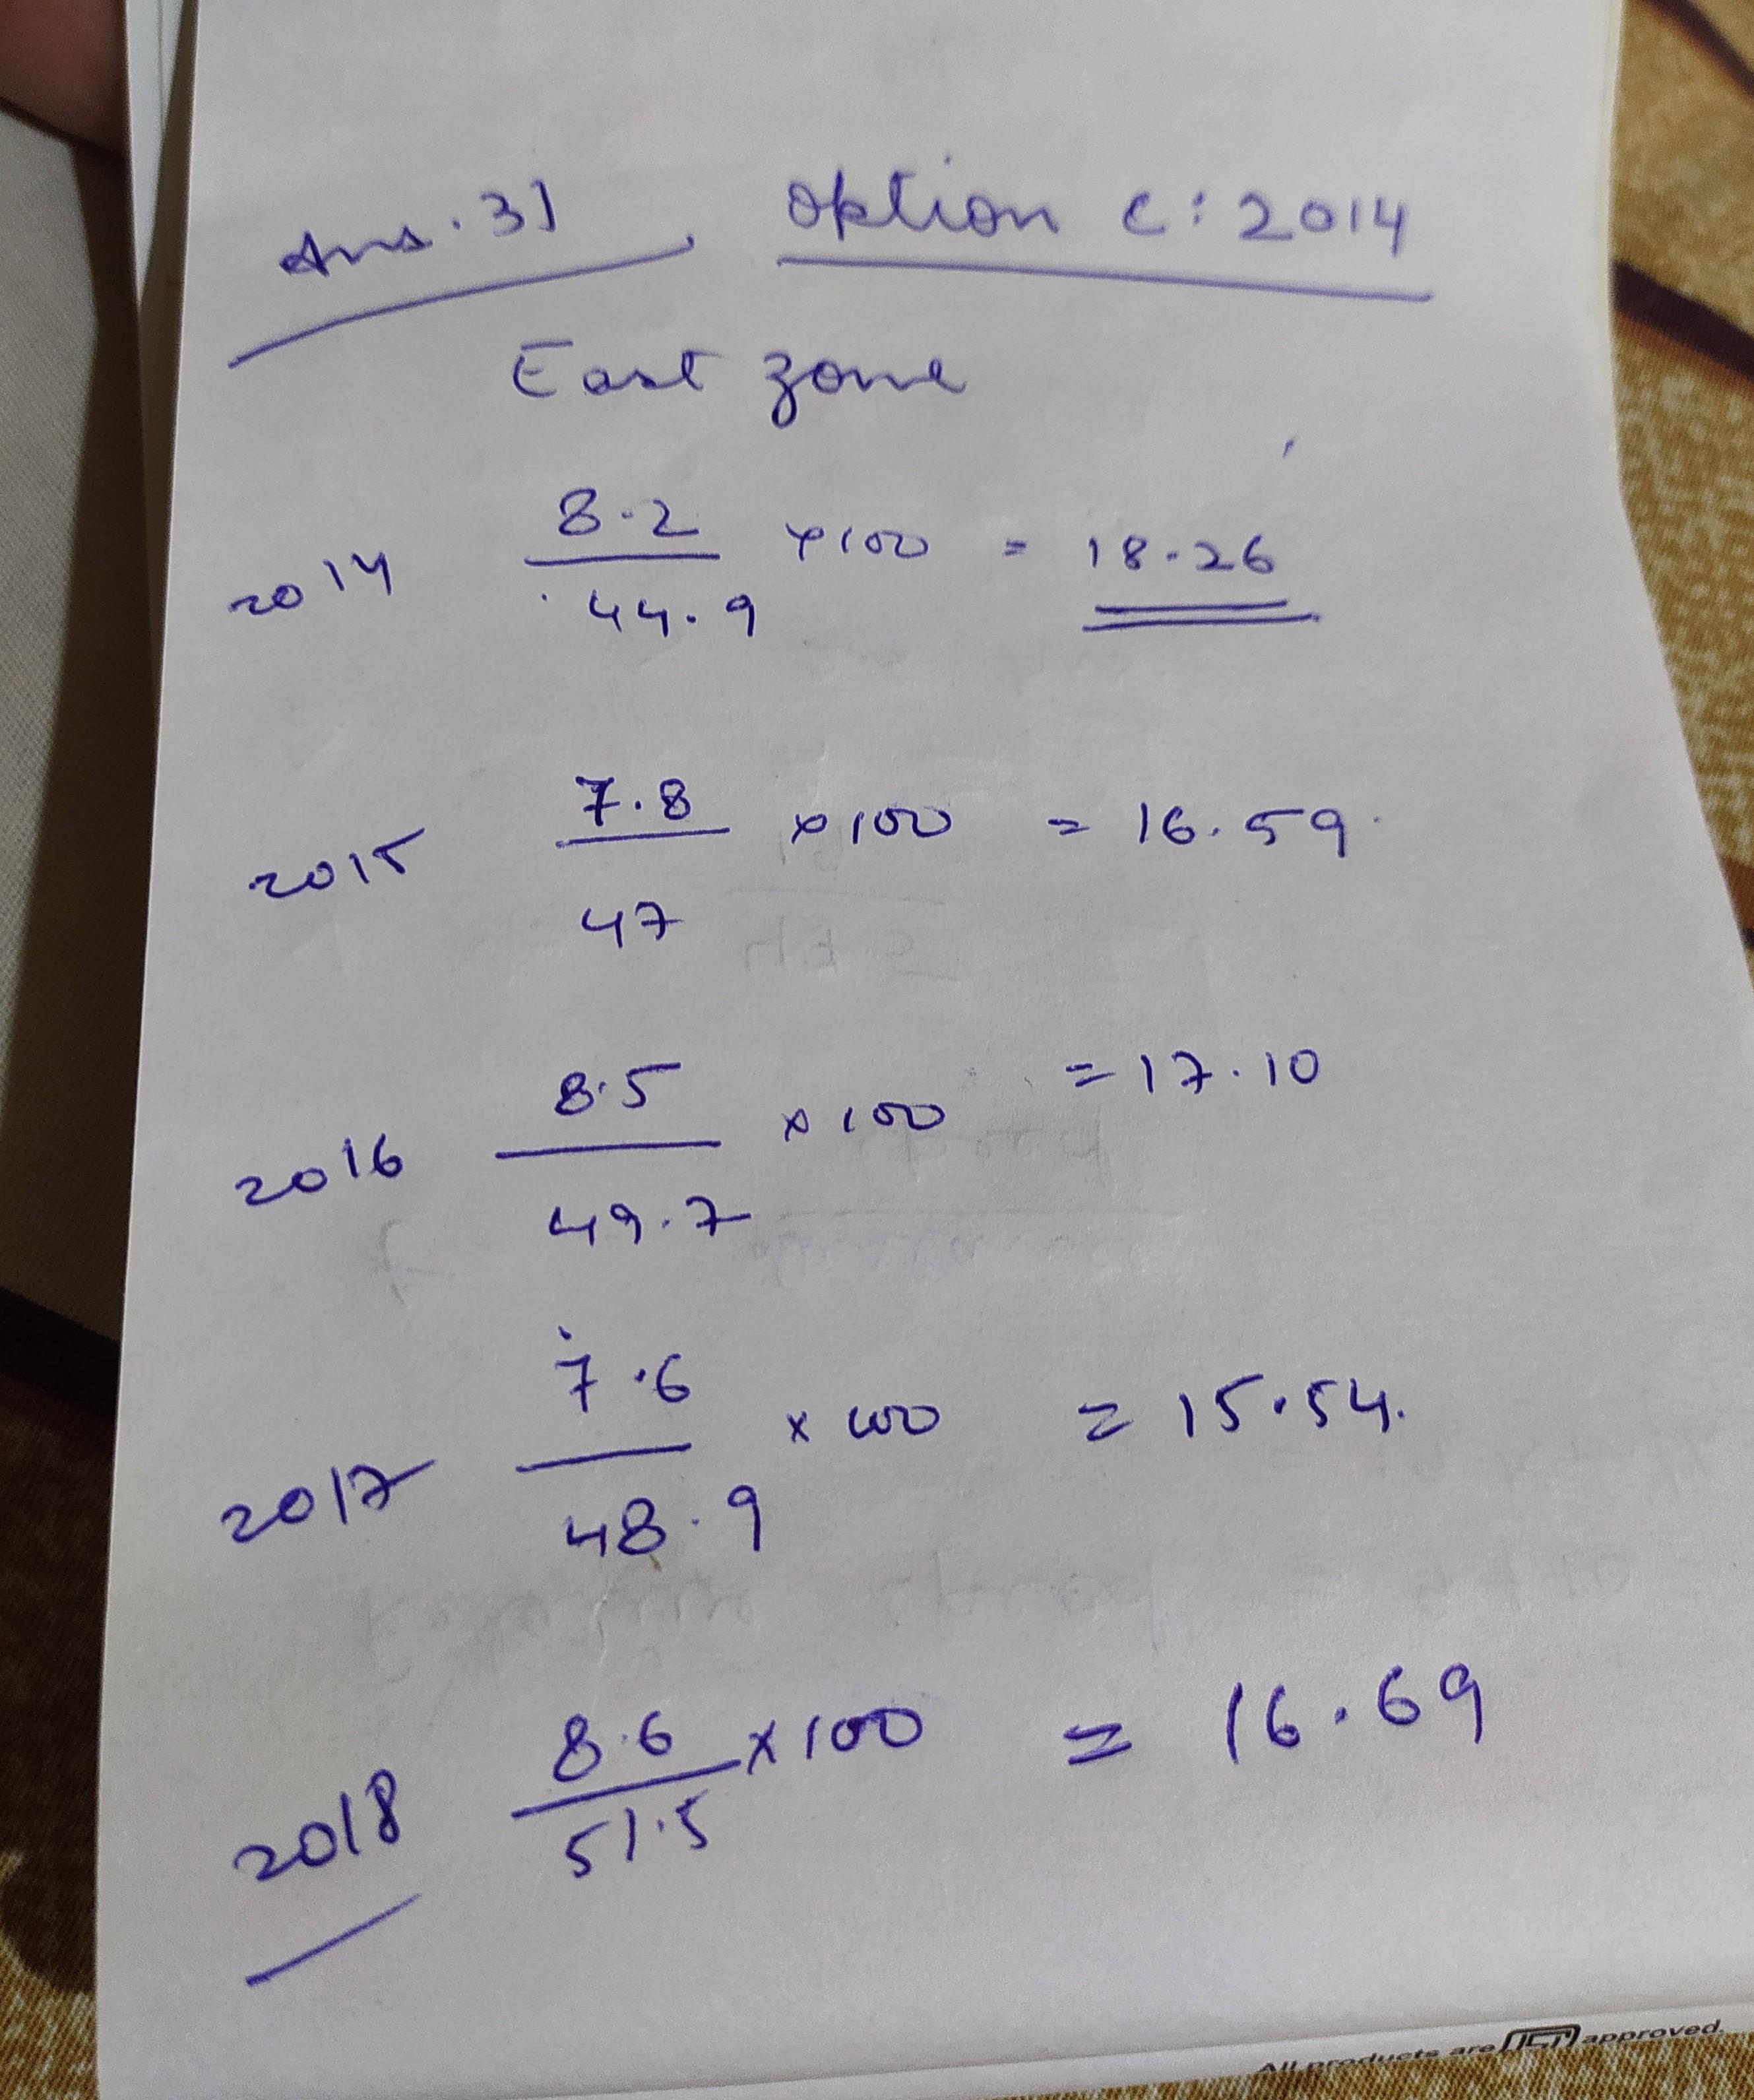 Ans. 3) Option C: 2014
East zone
8.2
2014 × 100 = 18.26
44.9
7.8
2015 × 100 = 16.59.
47
8.5
2016 × 100 = 17.10
49.7
7.6
2017 × 100 = 15.54.
48.9
8.6
2018 × 100 = 16.69
51.5
All products are JCI approved.